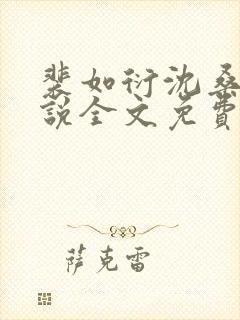 裴如衍沈桑
说全文免费
萨克雷